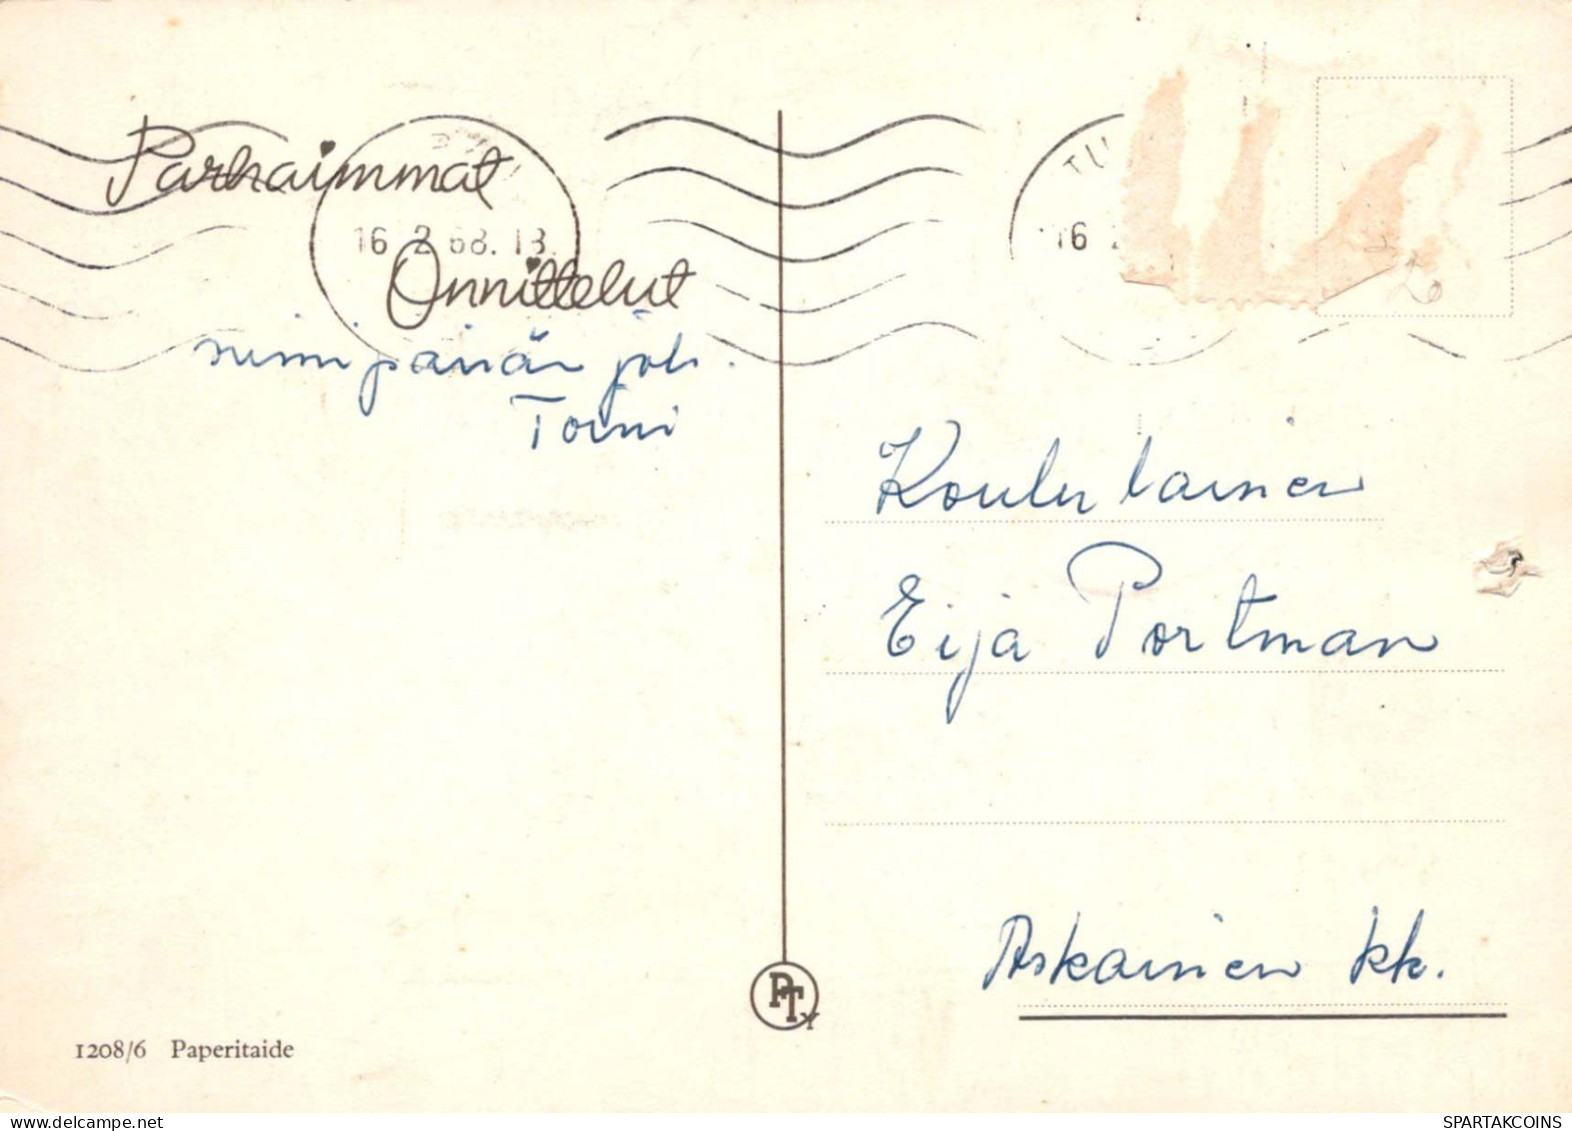 Parhaimmat
16 2 68. 18.
Onnittelut
nimipäivän joh.
Toini
TU
16
Koululainen
Eija Portman
Askainen kk.
PTY
1208/6 Paperitaide
www.delcampe.net
SPARTAKCOINS